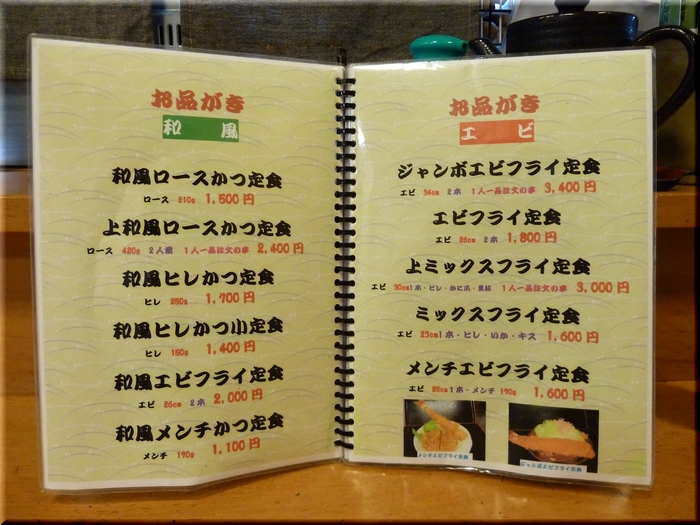 お品がき
和 風
和風ロースかつ定食
ロース 210g 1,500円
上和風ロースかつ定食
ロース 420g 2人前 1人一品注文の事 2,400円
和風ヒレかつ定食
ヒレ 250g 1,700円
和風ヒレかつ小定食
ヒレ 150g 1,400円
和風エビフライ定食
エビ 26cm 2本 2,000円
和風メンチかつ定食
メンチ 170g 1,100円
お品がき
エ ビ
ジャンボエビフライ定食
エビ 34cm 2本 1人一品注文の事 3,400円
エビフライ定食
エビ 26cm 2本 1,800円
上ミックスフライ定食
エビ 30cm1本・ヒレ・かに爪・貝柱 1人一品注文の事 3,000円
ミックスフライ定食
エビ 23cm1本・ヒレ・いか・キス 1,600円
メンチエビフライ定食
エビ 25cm1本・メンチ 170g 1,600円
メンチエビフライ定食
ジャンボエビフライ定食